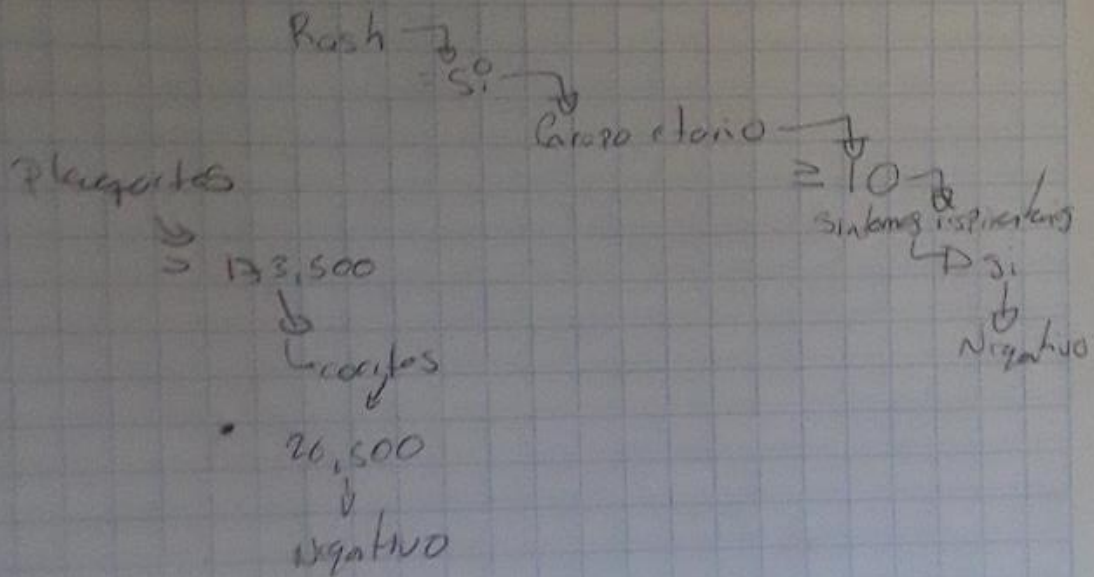 Rash
Si
Grupo etario
≥ 10
Sintomas respiratorios
Si
Negativo
Plaquetas
173,500
Leucocitos
Negativo